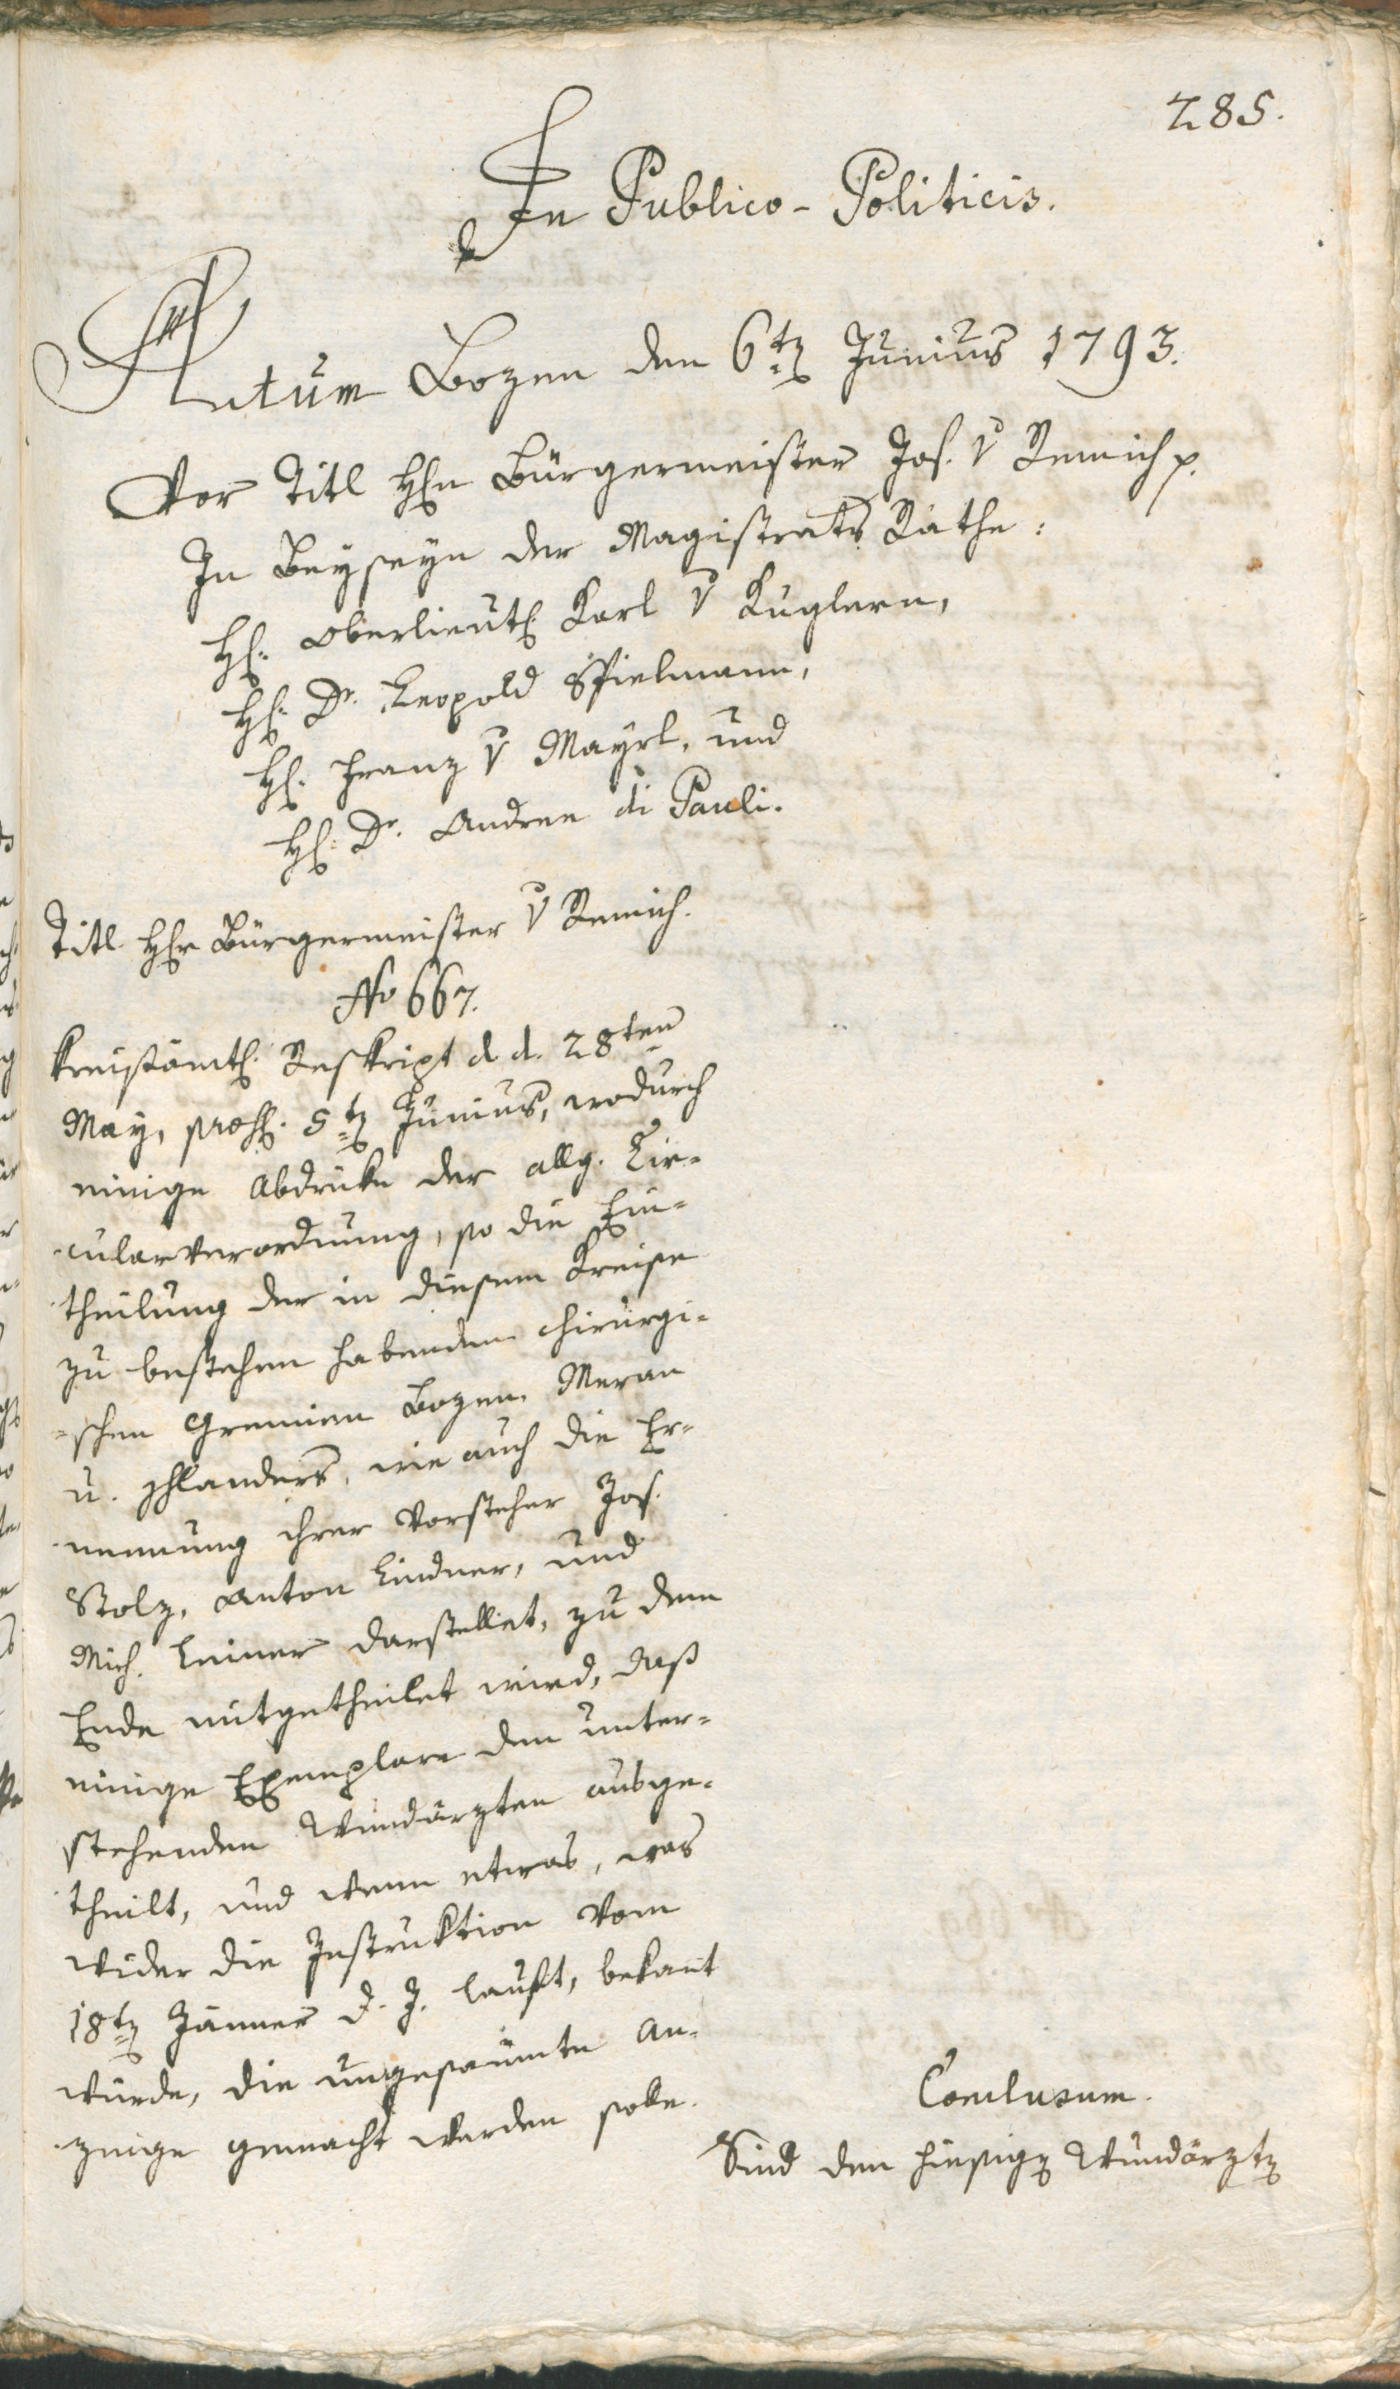 285.
In Publico-Politicis.
Actum Bozen den 6tn Junius 1793.
Vor Titl Hhn Bürgermeister Jos. v Remich p.
In Beyseyn der Magistrats Räthe:
H. Oberlieut. Karl v Kuglern,
H. Dr. Leopold Spielmann,
H. Franz v Mayrl, und
H. Dr. Andree di Pauli.
Titl. Hhr Bürgermeister v Remich.
No 667.
Kreisämtl. Reskript d. d. 28ten
May, praes. 5tn Junius, wodurch
einige Abdrücke der allg. Cir-
cularverordnung, so die Ein-
theilung der in diesem Kreise
zu bestehen habenden chirurgi-
schen Gremien Bozen, Meran
u. Schlanders, wie auch die Er-
nennung ihrer Vorsteher Jos.
Stolz, Anton Lindner, und
Mich. Leimer darstellet, zu dem
Ende mitgetheilet wird, daß
einige Exemplare den unter-
stehenden Wundärzten ausge-
theilt, und wenn etwas, was
wider die Instruktion vom
18tn Jänner d. J. lauft, bekant
würde, die ungesäumte An-
zeige gemacht werden solle.
Conclusum.
Sind den hiesign Wundärztn